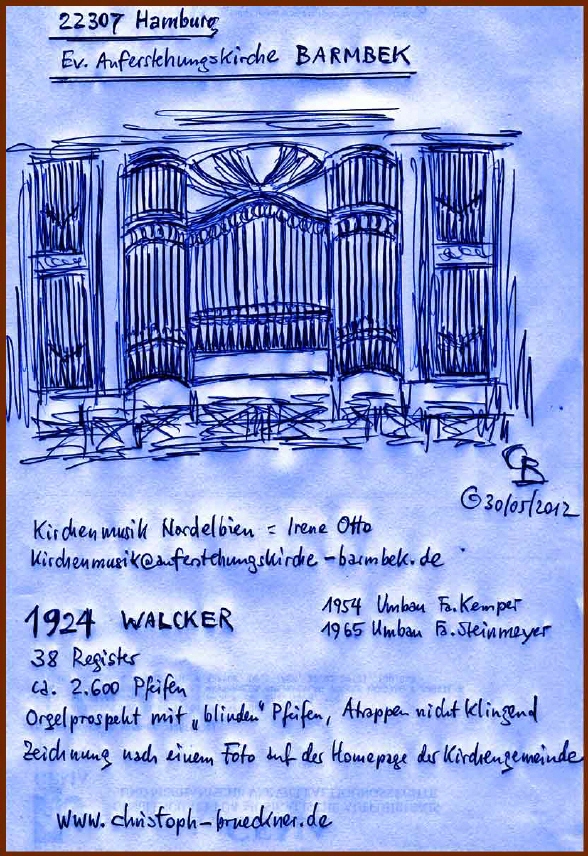 22307 Hamburg
Ev. Auferstehungskirche BARMBEK
CB
© 30/05/2012
Kirchenmusik Nordelbien = Irene Otto
Kirchenmusik@auferstehungskirche-barmbek.de
1924 WALCKER
1954 Umbau Fa. Kemper
1965 Umbau Fa. Steinmeyer
38 Register
ca. 2.600 Pfeifen
Orgelprospekt mit „blinden" Pfeifen, Atrappen nicht klingend
Zeichnung nach einem Foto auf der Homepage der Kirchengemeinde
www.christoph-brueckner.de